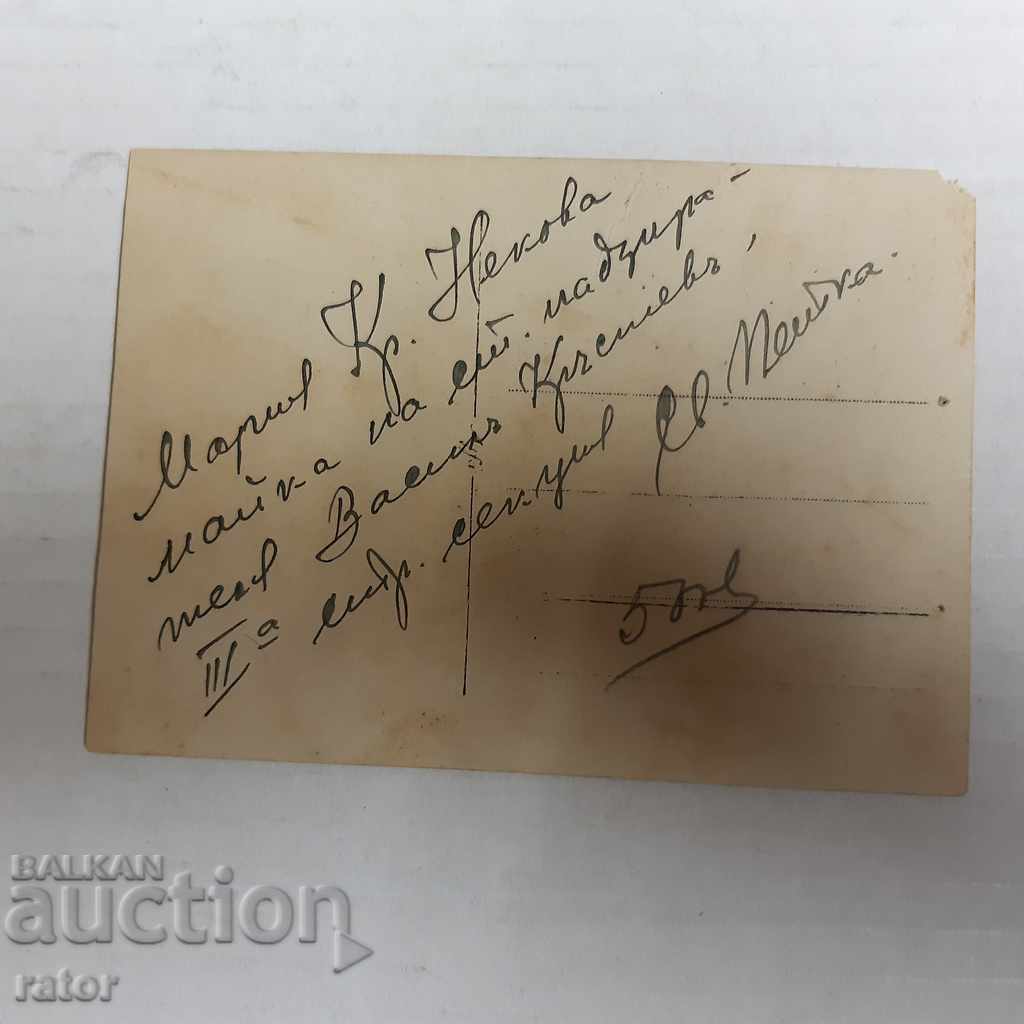 Мария Кр. Некова
майка на ст. надзира-
теля Василъ Кръстевъ,
III а стр. секция Св. Петка.
5лв
BALKAN
auction
rator